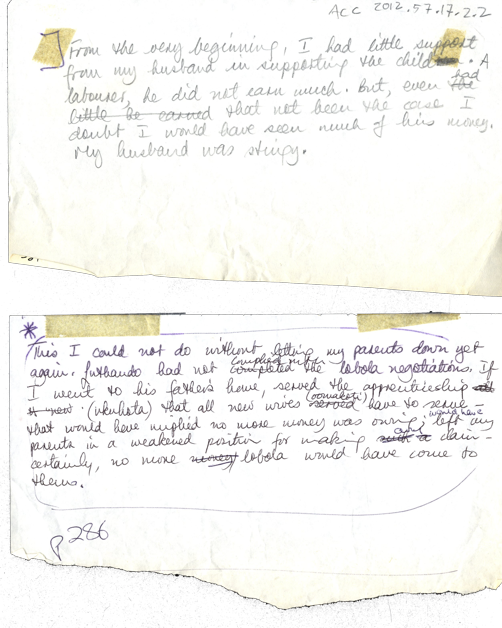 ACC 2012.57.17.2.2
From the very beginning, I had little support
from my husband in supporting the child. A
labourer, he did not earn much. But, even the had
little he earned that not been the case I
doubt I would have seen much of his money.
My husband was stingy.
This I could not do without letting my parents down yet
again. Luthando had not completed complied with the lobola negotiations. If
I went to his father's home, served the apprenticeship
(ukuhota) that all new wives (oomakoti) served have to serve -
that would have implied no more money was owing, would have left my
parents in a weakened position for making such a any claim -
certainly, no more money lobola would have come to
them.
p 286